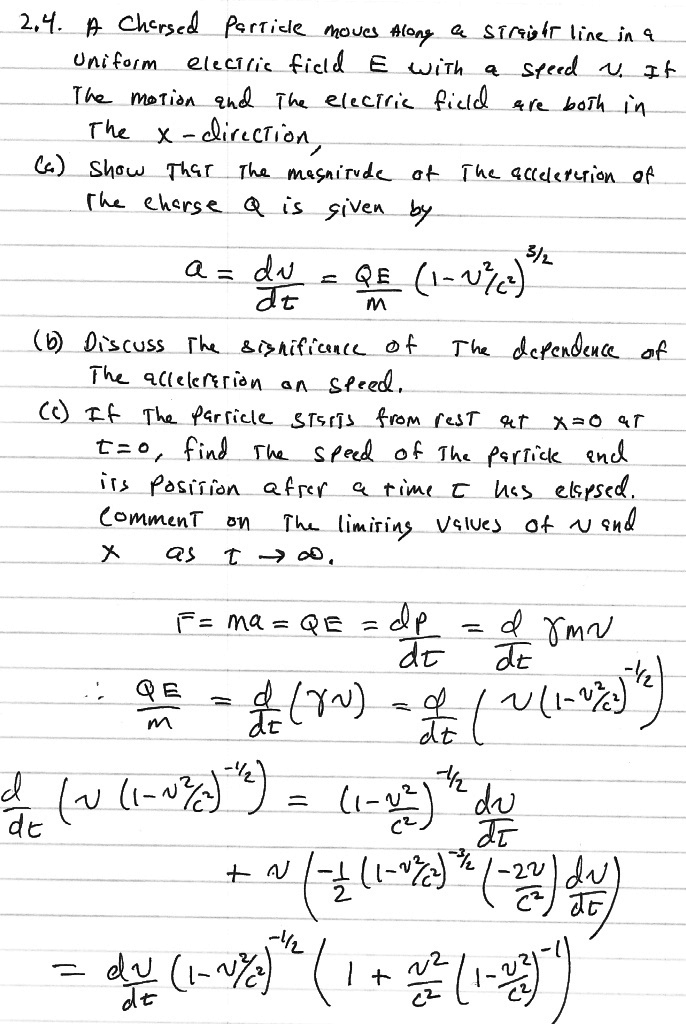 2.4. A Charged Particle moves Along a straight line in a
uniform electric field E with a speed v. If
The motion and The electric field are both in
The x-direction,
(a) Show That The magnitude of The acceleration of
The charge Q is given by
a = dv/dt = QE/m (1-v²/c²)^3/2
(b) Discuss The significance of The dependence of
The acceleration on speed.
(c) If The Particle starts from rest at x=0 at
t=0, find The speed of The particle and
its position after a time t has elapsed.
Comment on The limiting values of v and
x as t → ∞.
F = ma = QE = dp/dt = d/dt γmv
∴ QE/m = d/dt (γv) = d/dt (v(1-v²/c²)^-1/2)
d/dt (v (1-v²/c²)^-1/2) = (1-v²/c²)^-1/2 dv/dt
+ v (-1/2 (1-v²/c²)^-3/2 (-2v/c²) dv/dt)
= dv/dt (1-v²/c²)^-1/2 (1 + v²/c² (1-v²/c²)^-1)